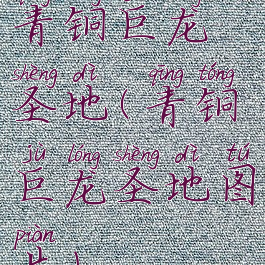 青铜巨龙
shèng dì qīng tóng
圣地(青铜
jù lóng shèng dì tú
巨龙圣地图
piàn